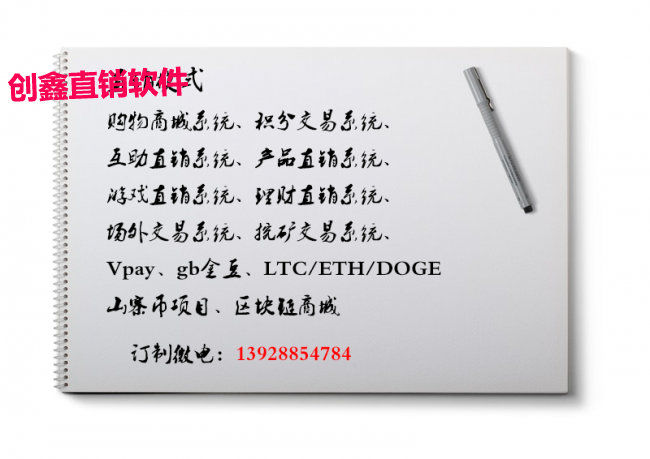 创鑫直销软件
式
购物商城系统、积分交易系统、
互助直销系统、产品直销系统、
游戏直销系统、理财直销系统、
场外交易系统、挖矿交易系统、
Vpay、gb金豆、LTC/ETH/DOGE
山寨币项目、区块链商城
订制微电：13928854784